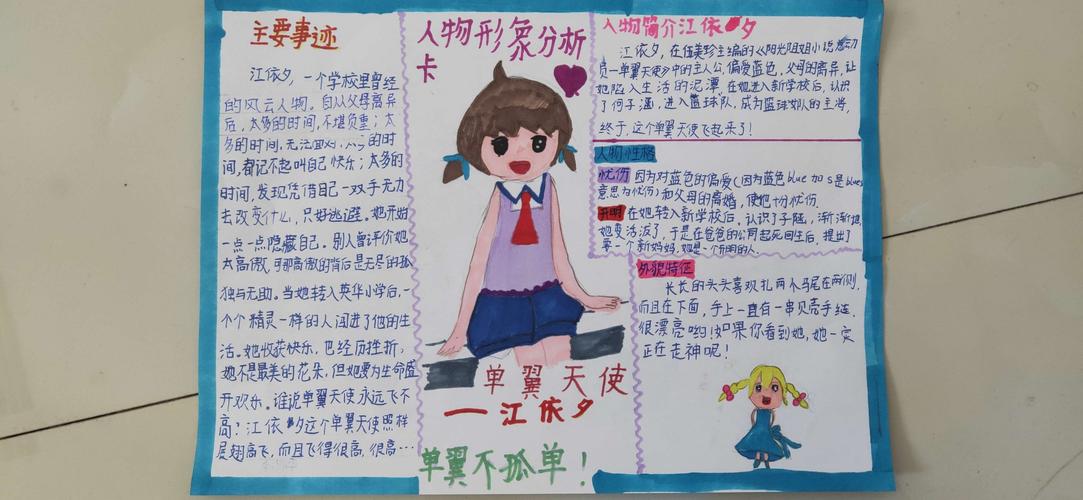 主要事迹
江依夕，一个学校里曾经
的风云人物。自从父母离异
后，太多的时间，不堪负重；太
多的时间，无法面对，的时
间，都记不起叫自己快乐；太多的
时间，发现凭借自己一双手无力
去改变什么，只好逃避。她开始
一点一点隐藏自己。别人曾评价她
太高傲，可那高傲的背后是无尽的孤
独与无助。当她转入英华小学后，一
个个精灵一样的人闯进了他的生
活。她收获快乐，也经历挫折，
她不是最美的花朵，但她要为生命盛
开欢乐。谁说单翼天使永远飞不
高？江依夕这个单翼天使照样
展翅高飞，而且飞得很高，很高…
人物形象分析
卡
单翼天使
——江依夕
单翼不孤单！
人物简介江依夕
江依夕，在伍美珍主编的《阳光姐姐小说总动
员—单翼天使》中的主人公，偏爱蓝色，父母的离异，让
她陷入生活的泥潭，在她进入新学校后，认识
了何子涵，进入篮球队，成为篮球女队的主将，
终于，这个单翼天使飞起来了！
人物性格
忧伤 因为对蓝色的偏爱（因为蓝色blue加s是blues
意思为忧伤）和父母的离婚，使她十份忧伤.
开明 在她转入新学校后，认识了子涵，渐渐地
她变活泼了，于是在爸爸的公司起死回生后，提出了
要一个新妈妈，她是一个开明的人.
外貌特征
长长的头头喜欢扎两个马尾在两侧，
而且在下面，手上一直有一串贝壳手链.
很漂亮哟！如果你看到她，她一定
正在走神呢！